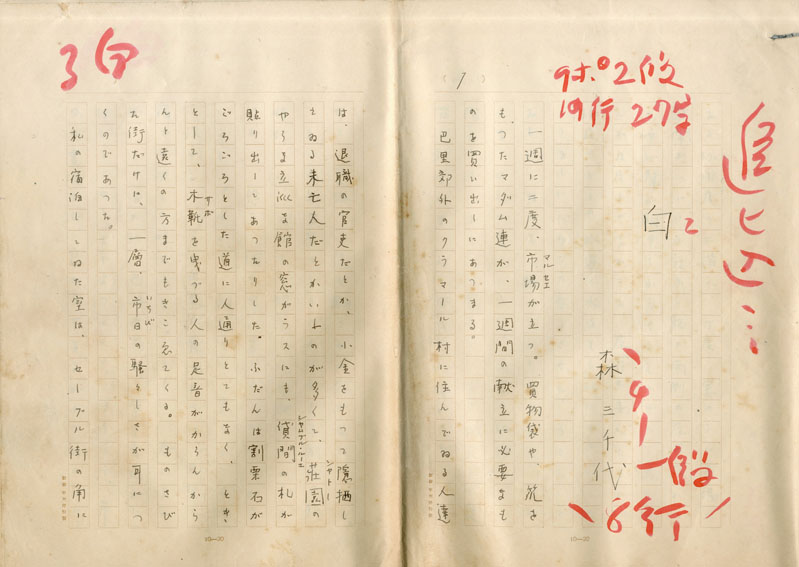 追込ミ
9ポ。2段
19行 27字
白
2
森三千代
4
一段
8行
(1)
一週に二度、市場が立つ。買物袋や、籠を
マルシェ
もつたマダム連が、一週間の献立に必要なも
のを買い出しにあつまる。
巴里郊外のクラマール村に住んでゐる人達
10—20
3
は、退職の官吏だとか、小金をもつて隠栖し
てゐる未亡人だとかいふのが多くて、荘園の
シャトー
やうな立派な館の窓がラスにも、貸間の札が
シャムブル・ルーエ
貼り出してあつたりした。ふだんは割栗石が
ごろごろとした道に人通りとてもなく、とき
として、木靴を曳づる人の足音がからんから
サボ
んと遠くの方までもきこえてくる。ものさび
た街だけに、一層、市日の騒々しさが耳につ
いちび
くのであつた。
私の宿泊してゐた室は、セーブル街の角に
10—20